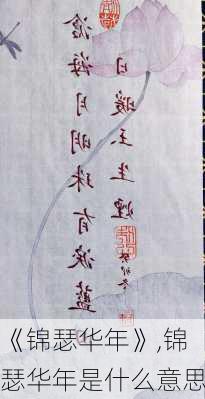 滄海月明珠有淚藍
日暖玉生煙
《锦瑟华年》,锦
瑟华年是什么意思